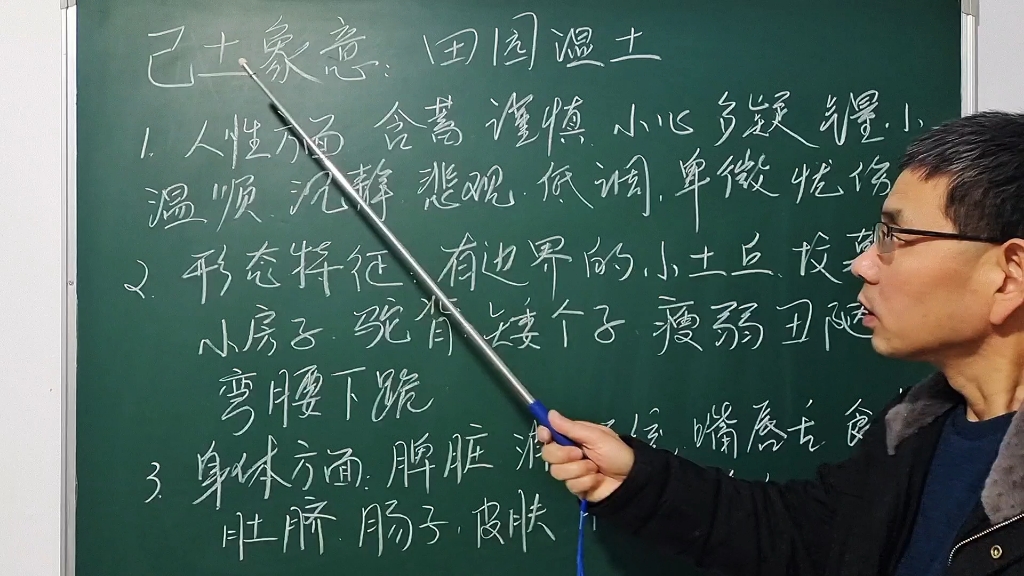 己土象意: 田园湿土
1. 人性方面 含蓄 谨慎. 小心 多疑 气量小
温顺. 沉静. 悲观. 低调. 卑微 忧伤
2. 形态特征 有边界的 小土丘. 坟墓
小房子. 驼背 矮个子. 瘦弱 丑陋
弯腰下跪
3. 身体方面. 脾脏 嘴唇 舌
肚脐. 肠子. 皮肤